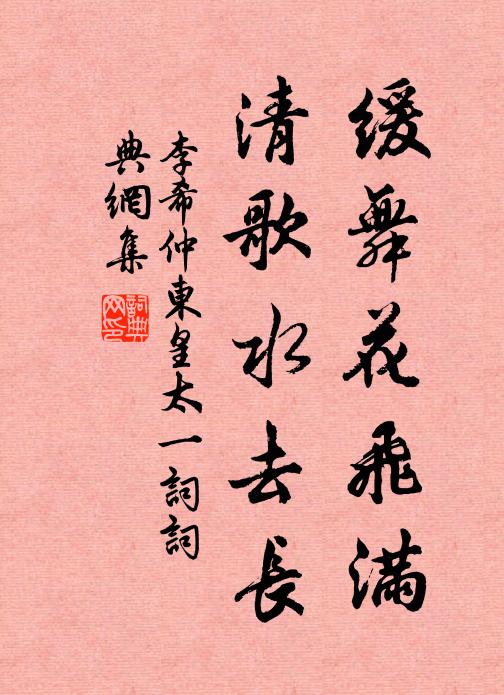 緩舞花飛滿
清歌水去長
李希仲東皇太一詞詞
典網集
詞典
网印